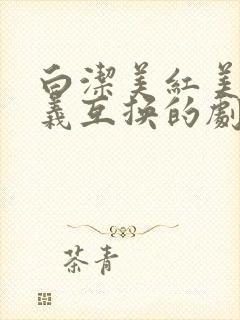 白潔美紅美
義互换的劇
茶青